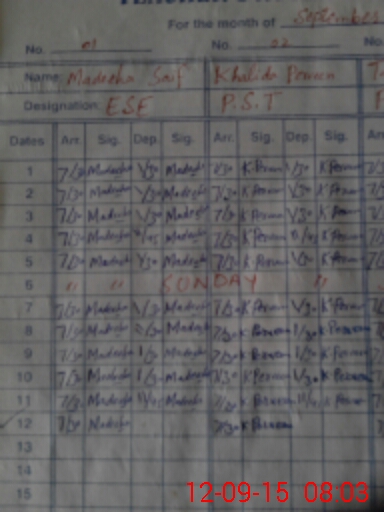 For the month of September
No. 01 No. 02 No.
Name: Madeeha Saif Khalida Perveen
Designation: ESE P.S.T
Dates Arr. Sig. Dep. Sig. Arr. Sig. Dep. Sig. Arr
1 7/30 Madeeha 1/30 Madeeha 7/30 K Perveen 1/30 K Perveen
2 7/30 Madeeha 1/30 Madeeha 7/30 K Perveen 1/30 K Perveen
3 7/30 Madeeha 1/30 Madeeha 7/30 K Perveen 1/30 K Perveen
4 7/30 Madeeha Madeeha 7/30 K Perveen K Perveen
5 7/30 Madeeha 1/30 Madeeha 7/30 K Perveen 1/30 K Perveen
6 " " SUNDAY "
7 7/30 Madeeha 1/30 Madeeha 7/30 K Perveen 1/30 K Perveen
8 7/30 Madeeha Madeeha 7/30 K Perveen 1/30 K Perveen
9 7/30 Madeeha 1/30 Madeeha 7/30 K Perveen 1/30 K Perveen
10 7/30 Madeeha 1/30 Madeeha 7/30 K Perveen 1/30 K Perveen
11 7/30 Madeeha Madeeha 7/30 K Perveen K Perveen
12 7/30 Madeeha 7/30 K Perveen
13
14
15
12-09-15 08:03